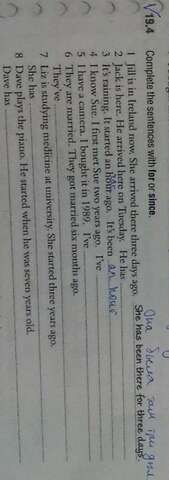 19.4 Complete the sentences with for or since.
She has been there for three days.
1 Jill is in Ireland now. She arrived there three days ago.
2 Jack is here. He arrived here on Tuesday. He has
3 It's raining. It started an hour ago. It's been an hour
4 I know Sue. I first met Sue two years ago. I've
5 I have a camera. I bought it in 1989. I've
6 They are married. They got married six months ago.
They've
7 Liz is studying medicine at university. She started three years ago.
She has
8 Dave plays the piano. He started when he was seven years old.
Dave has